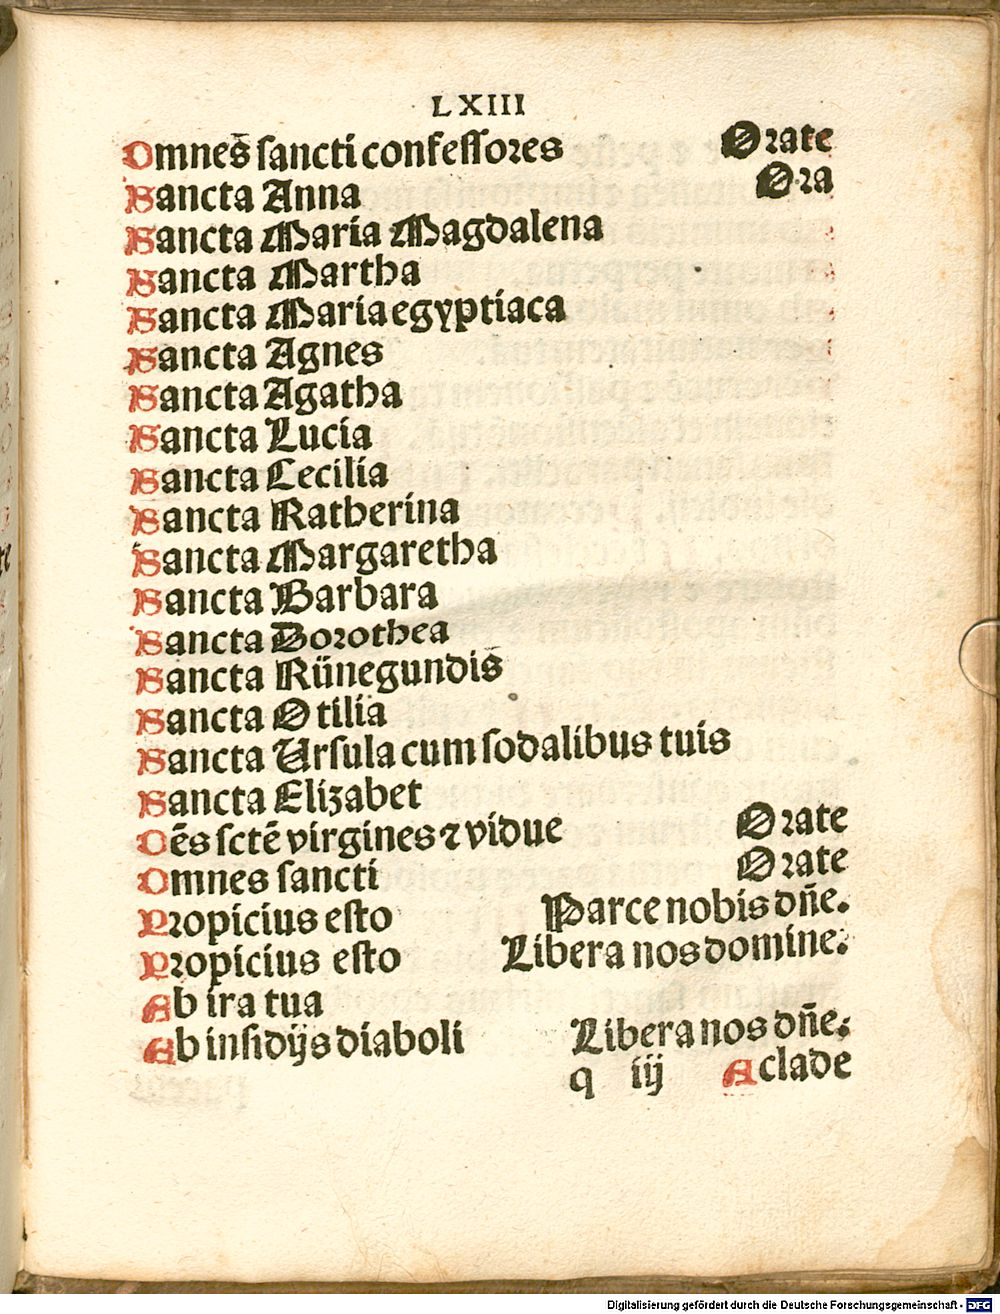 LXIII
Omnes̄ sancti confessores Orate
Sancta Anna Ora
Sancta Maria Magdalena
Sancta Martha
Sancta Maria egyptiaca
Sancta Agnes
Sancta Agatha
Sancta Lucia
Sancta Cecilia
Sancta Katherina
Sancta Margaretha
Sancta Barbara
Sancta Dorothea
Sancta Künegundis̄
Sancta Otilia
Sancta Ursula cum sodalibus tuis
Sancta Elizabet
Oēs sctē virgines ⁊ vidue Orate
Omnes sancti Orate
Propicius esto Parce nobis dn̄e.
Propicius esto Libera nos domine.
Ab ira tua
Ab insidijs diaboli Libera nos dn̄e.
q iij A clade
Digitalisierung gefördert durch die Deutsche Forschungsgemeinschaft - DFG